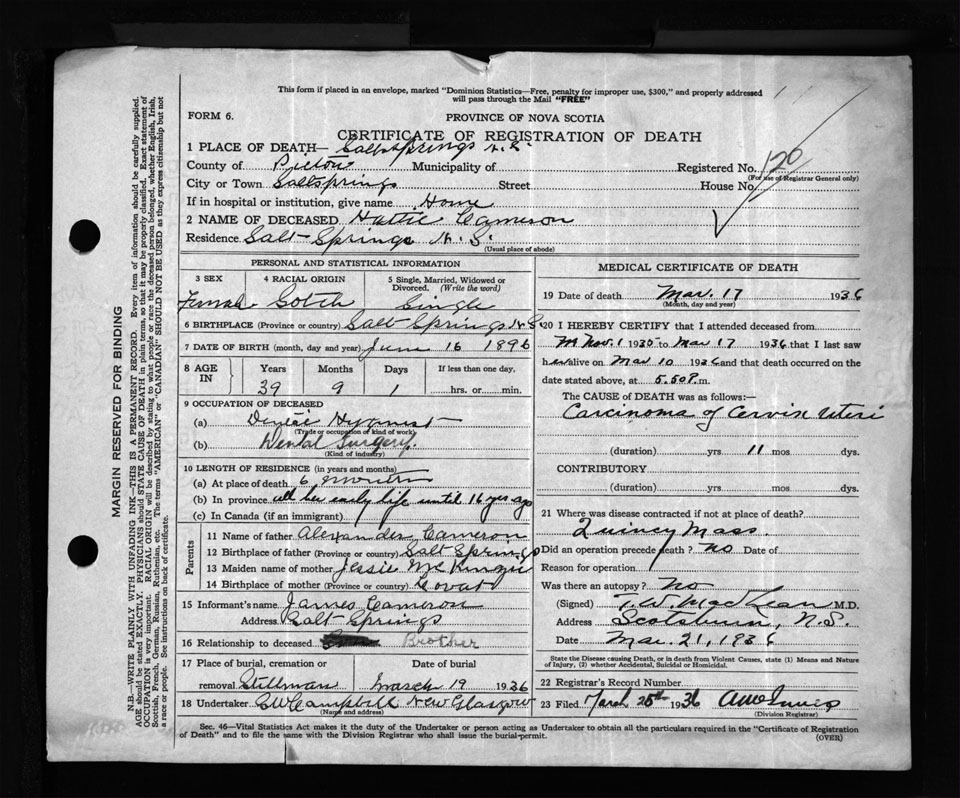 This form if placed in an envelope, marked "Dominion Statistics—Free, penalty for improper use, $300," and properly addressed
will pass through the Mail "FREE"
FORM 6.
PROVINCE OF NOVA SCOTIA
CERTIFICATE OF REGISTRATION OF DEATH
1 PLACE OF DEATH— Saltsprings N.S.
County of Pictou Municipality of Registered No. 120
(For use of Registrar General only)
City or Town Saltsprings Street House No.
If in hospital or institution, give name Home
2 NAME OF DECEASED Hattie Cameron
Residence Salt Springs N.S.
(Usual place of abode)
PERSONAL AND STATISTICAL INFORMATION
3 SEX 4 RACIAL ORIGIN 5 Single, Married, Widowed or
Divorced. (Write the word)
Female Scotch Single
6 BIRTHPLACE (Province or country) Salt Springs N.S.
7 DATE OF BIRTH (month, day and year) June 16 1896
8 AGE IN Years Months Days If less than one day,
39 9 1 hrs. or min.
9 OCCUPATION OF DECEASED
(a) Hygienist
(Trade or occupation of kind of work)
(b) Dental Surgery.
(Kind of industry)
10 LENGTH OF RESIDENCE (in years and months)
(a) At place of death 6 months
(b) In province all her early life until 16 yrs ago
(c) In Canada (if an immigrant)
Parents
11 Name of father Alexander Cameron
12 Birthplace of father (Province or country) Salt Springs
13 Maiden name of mother Jessie McKenzie
14 Birthplace of mother (Province or country) Lovat
15 Informant's name James Cameron
Address Salt Springs
16 Relationship to deceased Brother
17 Place of burial, cremation or Date of burial
removal Stillman March 19 1936
18 Undertaker C.W. Campbell New Glasgow
(Name and address)
MEDICAL CERTIFICATE OF DEATH
19 Date of death Mar. 17 1936
(Month, day and year)
20 I HEREBY CERTIFY that I attended deceased from
Nov. 1 1935 to Mar 17 1936 that I last saw
her alive on Mar 10 1936 and that death occurred on the
date stated above, at 5.50 P.m.
The CAUSE of DEATH was as follows:—
Carcinoma of Cervix Uteri
(duration) yrs 11 mos. dys.
CONTRIBUTORY
(duration) yrs. mos. dys.
21 Where was disease contracted if not at place of death?
Quincy Mass.
Did an operation precede death? No Date of
Reason for operation
Was there an autopsy? No
(Signed) T.W. MacLean M.D.
Address Scotsburn, N.S.
Date Mar. 21, 1936
State the Disease causing Death, or in death from Violent Causes, state (1) Means and Nature
of Injury, (2) whether Accidental, Suicidal or Homicidal.
22 Registrar's Record Number
23 Filed March 25th 1936
(Division Registrar)
Sec. 46—Vital Statistics Act makes it the duty of the Undertaker or person acting as Undertaker to obtain all the particulars required in the "Certificate of Registration
of Death" and to file the same with the Division Registrar who shall issue the burial-permit.
(OVER)
MARGIN RESERVED FOR BINDING
N.B.—WRITE PLAINLY WITH UNFADING INK—THIS IS A PERMANENT RECORD. Every item of information should be carefully supplied.
AGE should be stated EXACTLY. PHYSICIANS should STATE CAUSE OF DEATH in plain terms, so that it may be properly classified. Exact statement of
OCCUPATION is very important. RACIAL ORIGIN will be described by stating to what people or race the deceased person belonged, whether English, Irish,
Scottish, French, German, Russian, Ruthenian, etc. The terms "AMERICAN" or "CANADIAN" SHOULD NOT BE USED as they express citizenship but not
a race or people. See instructions on back of certificate.